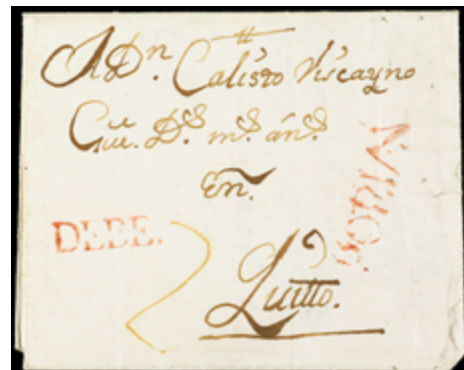 A Dn. Calisto Viscayno
Gue. Ds. ms. ans.
En.
DEBE.
2
Quitto.